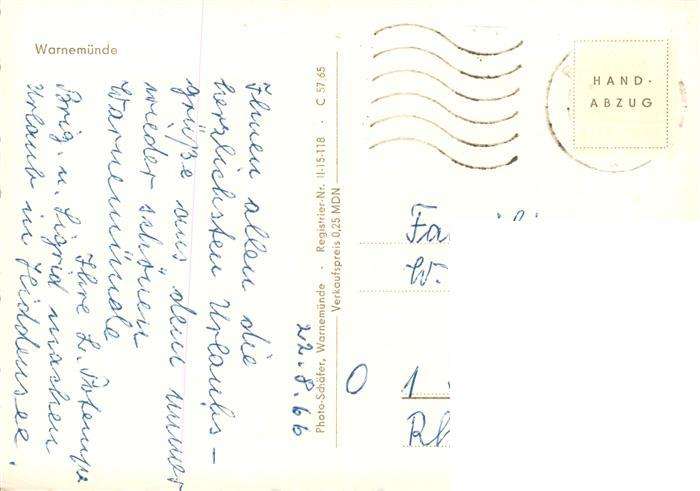 Warnemünde
Ihnen allen die
herzlichsten Urlaubs-
grüße aus dem immer
wieder schönen
Warnemünde
Ihre L. Potempa
Brig. u. Sigrid machen
Urlaub in Hiddensee.
22.8.66
Photo-Schäfer, Warnemünde · Registrier-Nr. II-15-118 · C 57/65
Verkaufspreis 0,25 MDN
HAND-
ABZUG
Fa
W.
0 1
Rh